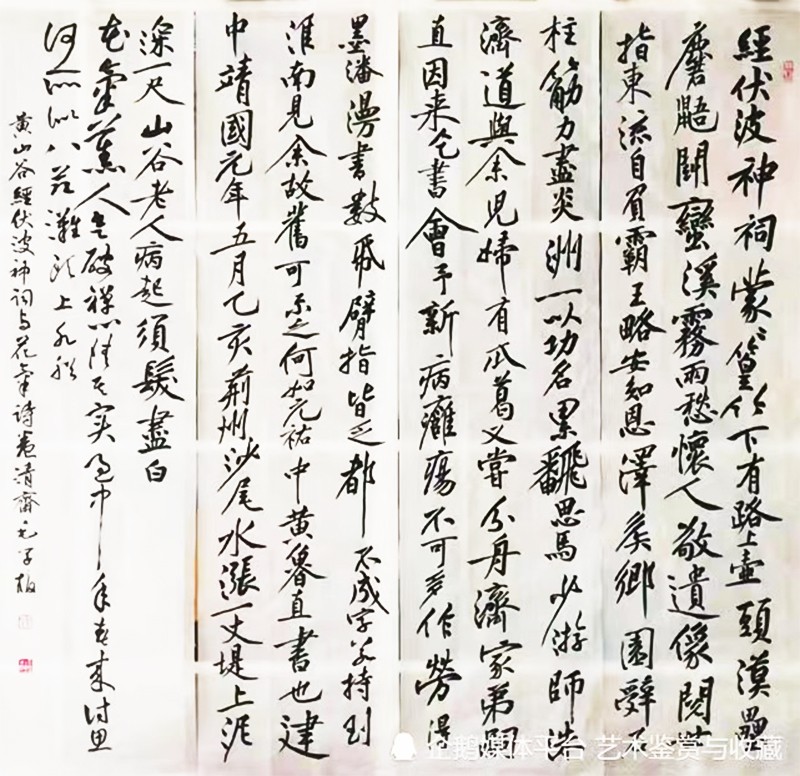 經伏波神祠蒙々篁竹下有路上壺頭漠壘
麏鼯鬬蠻溪霧雨愁懷人敬遺像閱
指東流自負霸王略安知恩澤侯鄉園辭
柱筋力盡炎洲一以功名累翻思馬少游師洙
濟道與余兒婦有瓜葛又嘗分舟濟家弟嗣
直因来乞書會予新病癰瘍不可多作勞得
墨瀋漫書數紙臂指皆乏都不成字若持到
淮南見余故舊可示之何如元祐中黄魯直書也建
中靖國元年五月乙亥荆州沙尾水漲一丈堤上泥
深一尺山谷老人病起須髮盡白
花氣薰人欲破禪心情其實過中年春来詩思
何所似八节灘頭上水船
黄山谷經伏波神祠与花氣詩卷清齋
企鹅媒体平台 艺术鉴赏与收藏